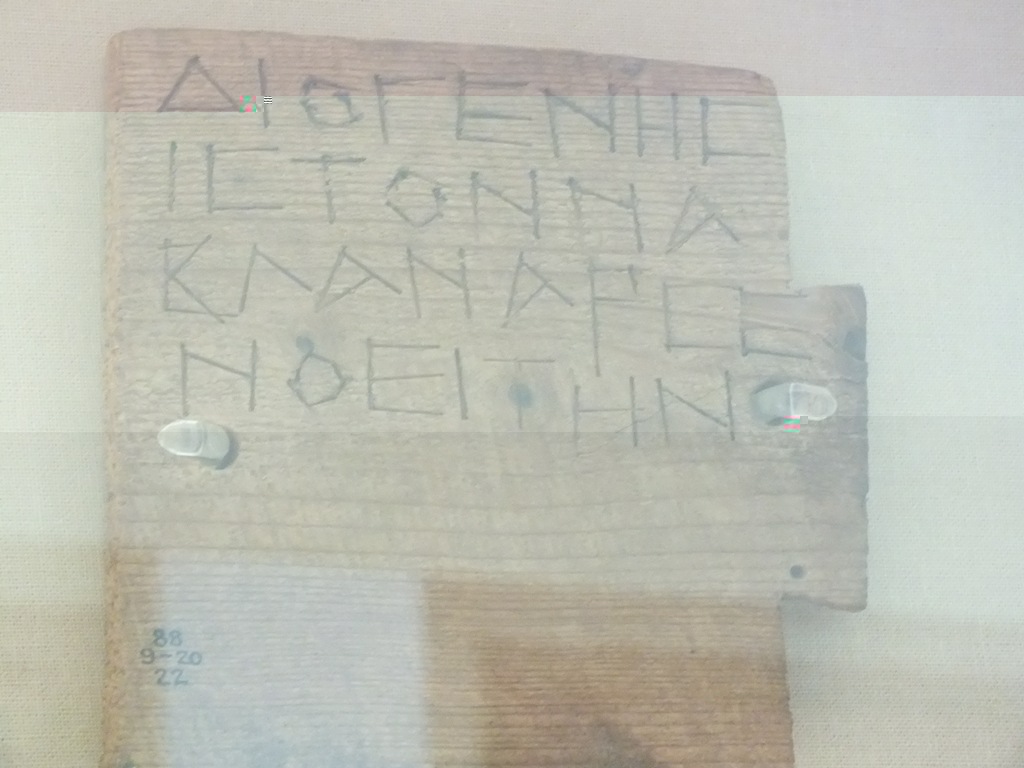 ΔΙΟΓΕΝΗC
ΙCΤΟΝΝΑ
ΒΛΑΝΑΡCΕ
ΝΟΕΙΤΗΝ
88
9-20
22